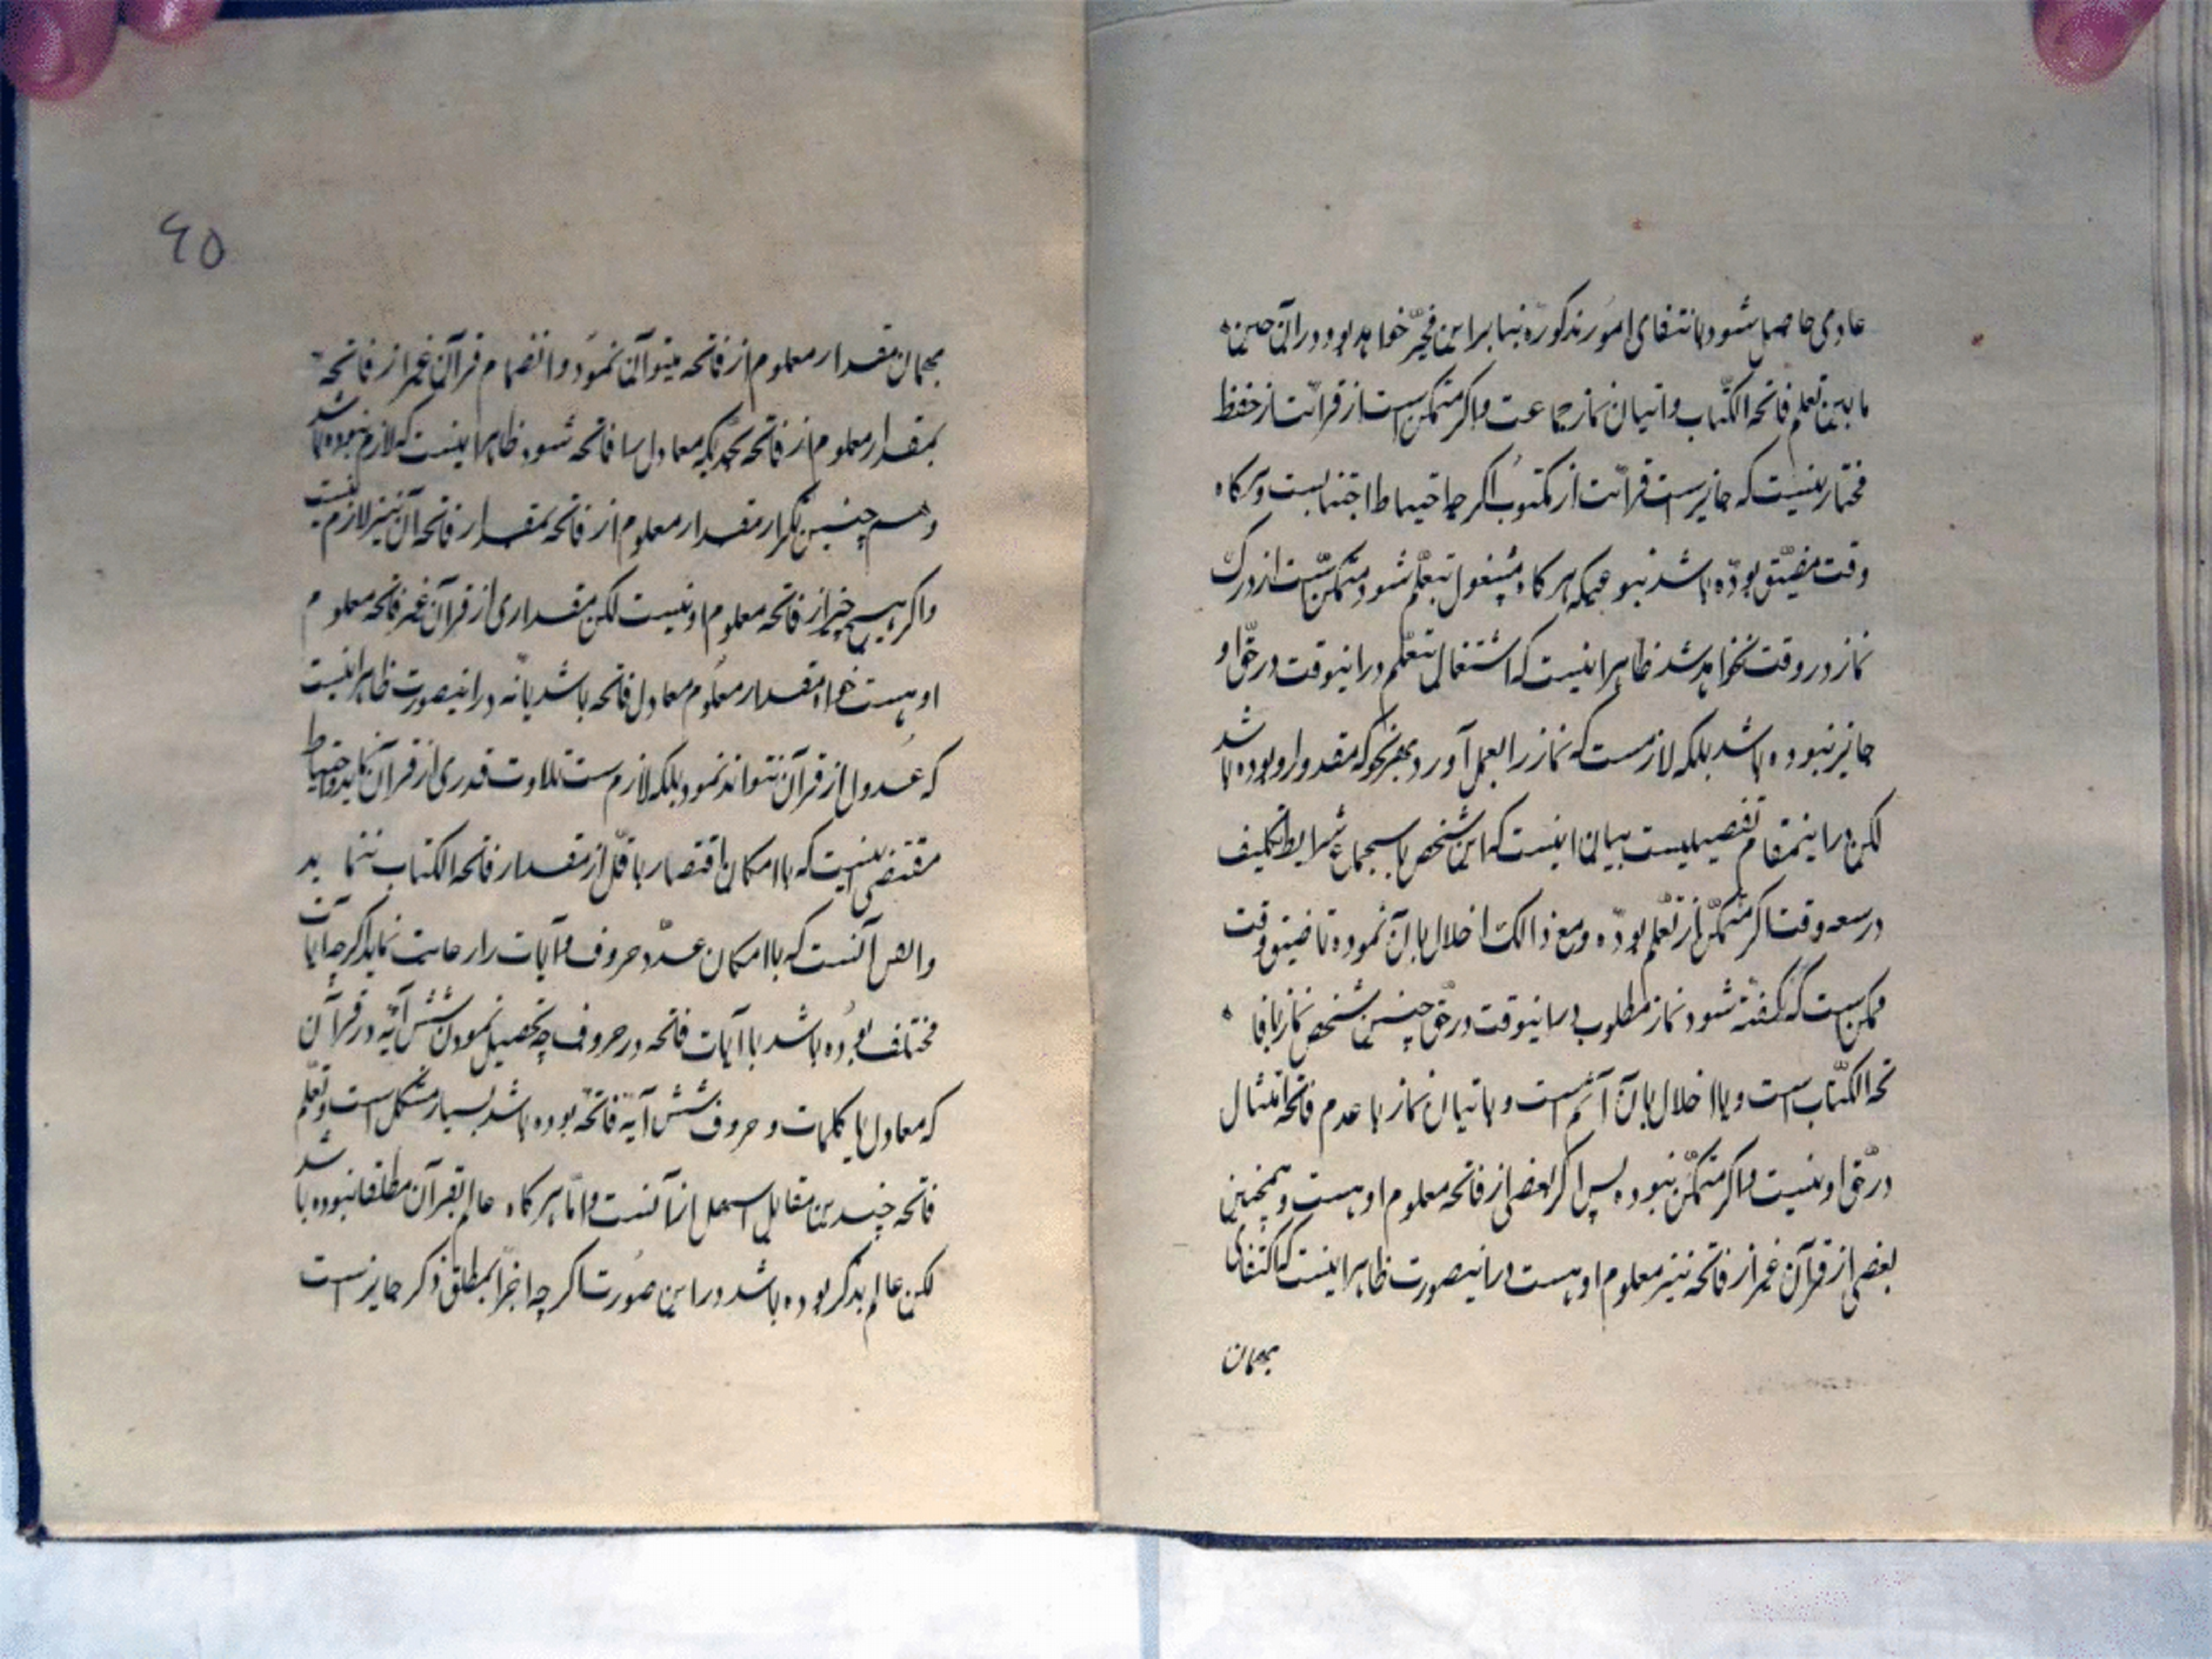 عادی حاصل شود بانتفای امور مذکوره بنا براین مخیّر خواهد بود در آن حین
ما بین تعلم فاتحه الکتاب و اتیان نماز جماعت و اگر متمکن است از قرائت از حفظ
مختار اینست که جایز است قرائت از مکتوب اگر چه احتیاط اجتنابست و هرگاه
وقت مضیّق بوده باشد بنوعیکه هرگاه مشغول بتعلّم شود متمکن از درک
نماز در وقت نخواهد شد ظاهر اینست که اشتغال بتعلّم در اینوقت در حقّ او
جایز نبوده باشد بلکه لازمست که نماز را بعمل آورد بهر نحو که مقدور او بوده باشد
لکن در اینمقام تفصیلیست بیان اینست که این شخص با استجماع شرایط تکلیف
در سعه وقت اگر متمکّن از تعلّم بوده و مع ذالک اخلال بآن نموده تا ضیق وقت
ممکن است که گفته شود نماز مطلوب در اینوقت در حقّ چنین شخص نماز با فا
تحه الکتاب است و با اخلال بآن آثم است و باتیان نماز با عدم فاتحه امتثال
در حقّ او نیست و اگر متمکّن نبوده پس اگر بعضی از فاتحه معلوم او هست و همچنین
بعضی از قرآن غیر از فاتحه نیز معلوم او هست در اینصورت ظاهر اینست که اکتفای
بهمان
٤٥
بهمان مقدار معلوم از فاتحه میتوان نمود و انضمام قرآن غیر از فاتحه
بمقدار معلوم از فاتحه بحدّیکه معادل با فاتحه شود ظاهر اینست که لازم نبوده باشد
و همچنین تکرار مقدار معلوم از فاتحه بمقدار فاتحه آن نیز لازم نیست
و اگر هیچ چیز از فاتحه معلوم او نیست لکن مقداری از قرآن غیر فاتحه معلوم
او هست خواه مقدار معلوم معادل فاتحه باشد یا نه در اینصورت ظاهر اینست
که عدول از قرآن نتواند نمود بلکه لازم است تلاوت قدری از قرآن نماید و احتیاط
مقتضی اینست که با امکان اقتصار باقلّ از مقدار فاتحه الکتاب ننماید
و آنست که با امکان عدد حروف و آیات را رعایت نماید اگر چه آیات
مختلف بوده باشد با آیات فاتحه در حروف چه تحصیل نمودن شش آیه در قرآن
که معادل با کلمات و حروف شش آیه فاتحه بوده باشد بسیار مشکل است و تعلّم
فاتحه چندین مقابل اسهل از آنست و امّا هرگاه عالم بقرآن مطلقا نبوده باشد
لکن عالم بذکر بوده باشد در این صورت اگر چه اجزا بمطلق ذکر جایز است